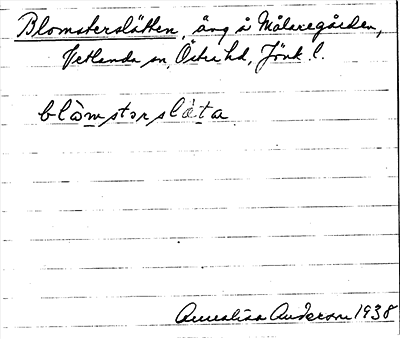 Blomsterslätten, äng å Målaregården,
Vetlanda sn, Östra hd, Jönk. l.
blòmstərslèta
Annalisa Anderson 1938